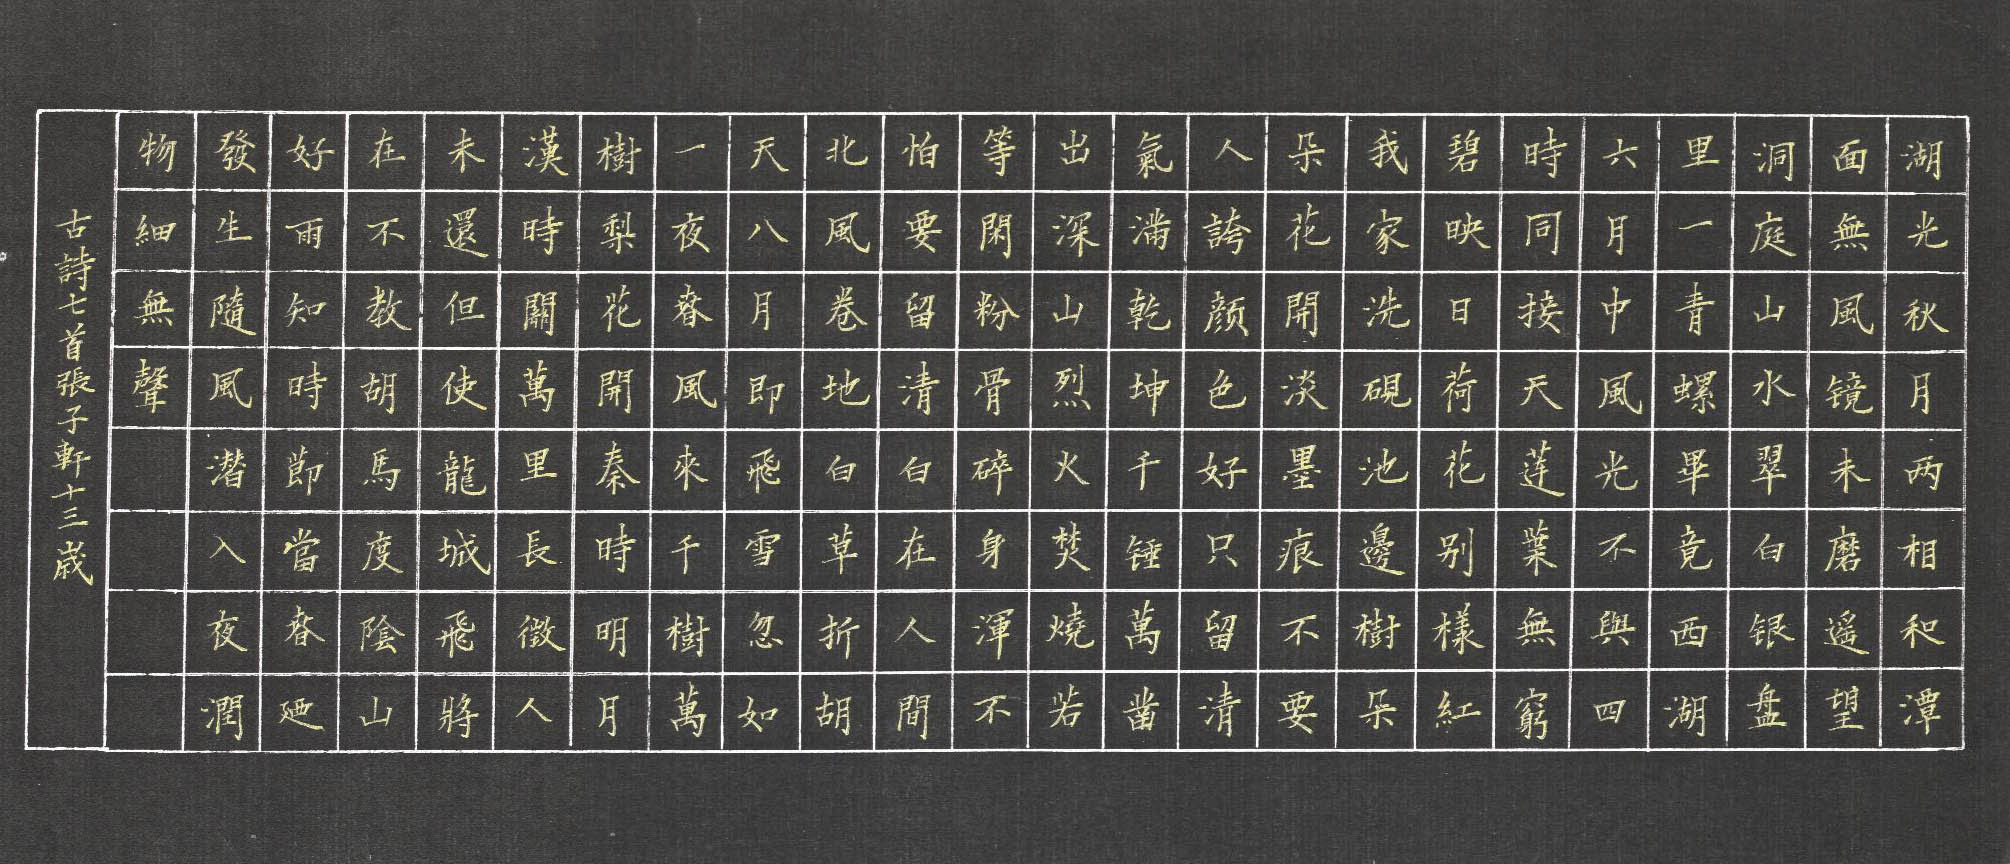 湖光秋月两相和潭
面無風镜未磨遥望
洞庭山水翠白银盘
里一青螺畢竟西湖
六月中風光不與四
時同接天莲葉無窮
碧映日荷花别樣紅
我家洗硯池邊樹朵
朵花開淡墨痕不要
人誇颜色好只留清
氣满乾坤千锤萬凿
出深山烈火焚燒若
等閑粉骨碎身渾不
怕要留清白在人間
北風卷地白草折胡
天八月即飛雪忽如
一夜春風來千樹萬
樹梨花開秦時明月
漢時關萬里長徵人
未還但使龍城飛將
在不教胡馬度陰山
好雨知時節當春廼
發生隨風潜入夜潤
物細無聲
古詩七首張子軒十三歲